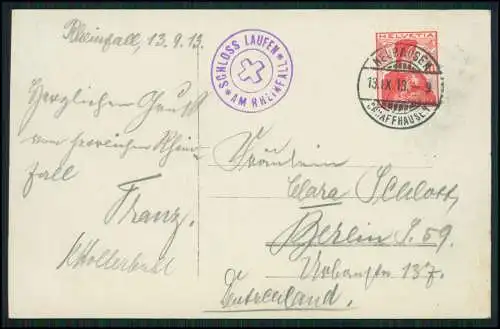 Rheinfall, 13.9.13.
Herzlichen Gruß
vom herrlichen Rhein
fall
Franz.
SCHLOSS LAUFEN
AM RHEINFALL
HELVETIA
NEUHAUSEN
13.IX.13.
SCHAFFHAUSEN
Fräulein
Clara Schlott,
Berlin S. 59.
Urbanstr 137.
Deutschland.